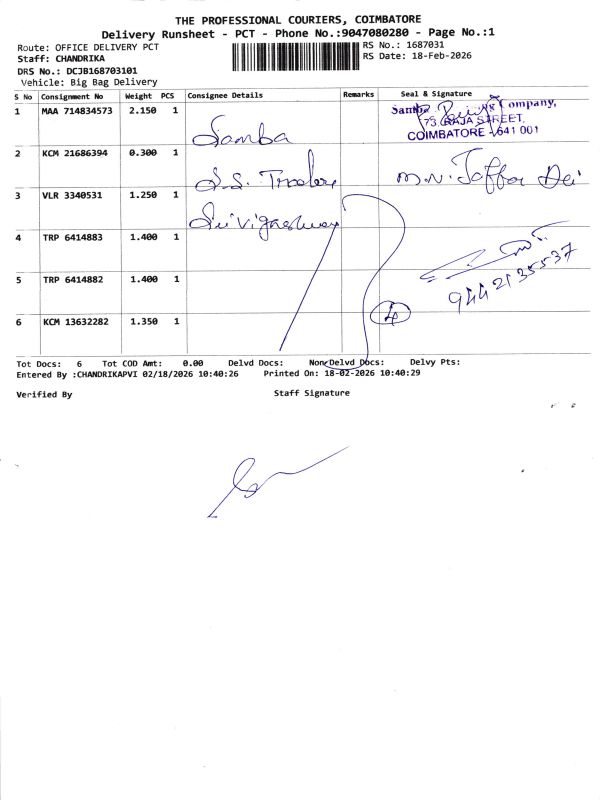 THE PROFESSIONAL COURIERS, COIMBATORE
Delivery Runsheet - PCT - Phone No.:9047080280 - Page No.:1
Route: OFFICE DELIVERY PCT
RS No.: 1687031
Staff: CHANDRIKA
RS Date: 18-Feb-2026
DRS No.: DCJB168703101
Vehicle: Big Bag Delivery
S No Consignment No Weight PCS Consignee Details Remarks Seal & Signature
1 MAA 714834573 2.150 1 Samba
Samba Company,
73, RAJA STREET,
COIMBATORE - 641 001
2 KCM 21686394 0.300 1 S.S. Traders M.N. Jaffar
3 VLR 3340531 1.250 1
4 TRP 6414883 1.400 1
9442135537
5 TRP 6414882 1.400 1
4
6 KCM 13632282 1.350 1
Tot Docs: 6 Tot COD Amt: 0.00 Delvd Docs: Non Delvd Docs: Delvy Pts:
Entered By :CHANDRIKAPVI 02/18/2026 10:40:26 Printed On: 18-02-2026 10:40:29
Verified By Staff Signature